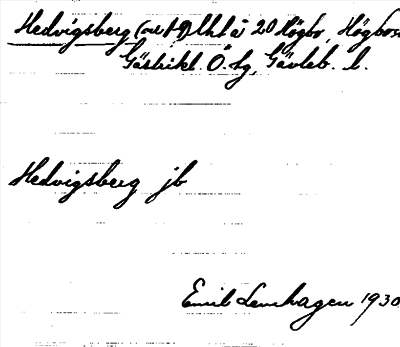 Hedvigsberg (urt?) lht å 20 Högbo, Högbos
Gästrikl. Ö. tg, Gävleb. l.
Hedvigsberg jb
Emil Lenhagen 1930